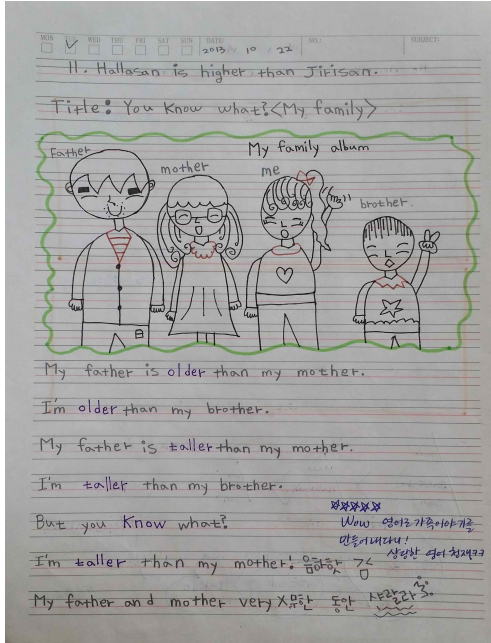 MON TUE WED THU FRI SAT SUN DATE: 2013. 10. 22 NO.: SUBJECT:
11. Hallasan is higher than Jirisan.
Title: You Know what?<My family>
My family album
Father
mother
me
brother.
My father is older than my mother.
I'm older than my brother.
My father is taller than my mother.
I'm taller than my brother.
But you Know what?
☆☆☆☆☆
Wow 영어로 가족이야기를
만들어내다니!
상당한 영어 천재ㅋㅋ
I'm taller than my mother! 음하핫 ><
My father and mother very X 묘한 동안 샤랄라